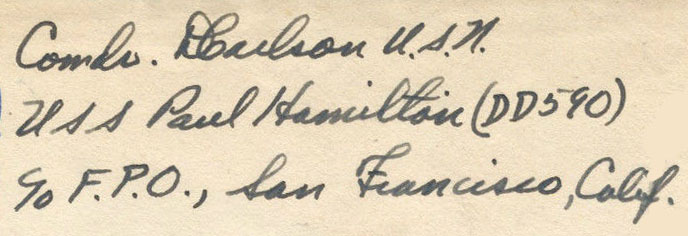 Comdr. D Carlson U.S.N.
USS Paul Hamilton (DD590)
c/o F.P.O., San Francisco, Calif.